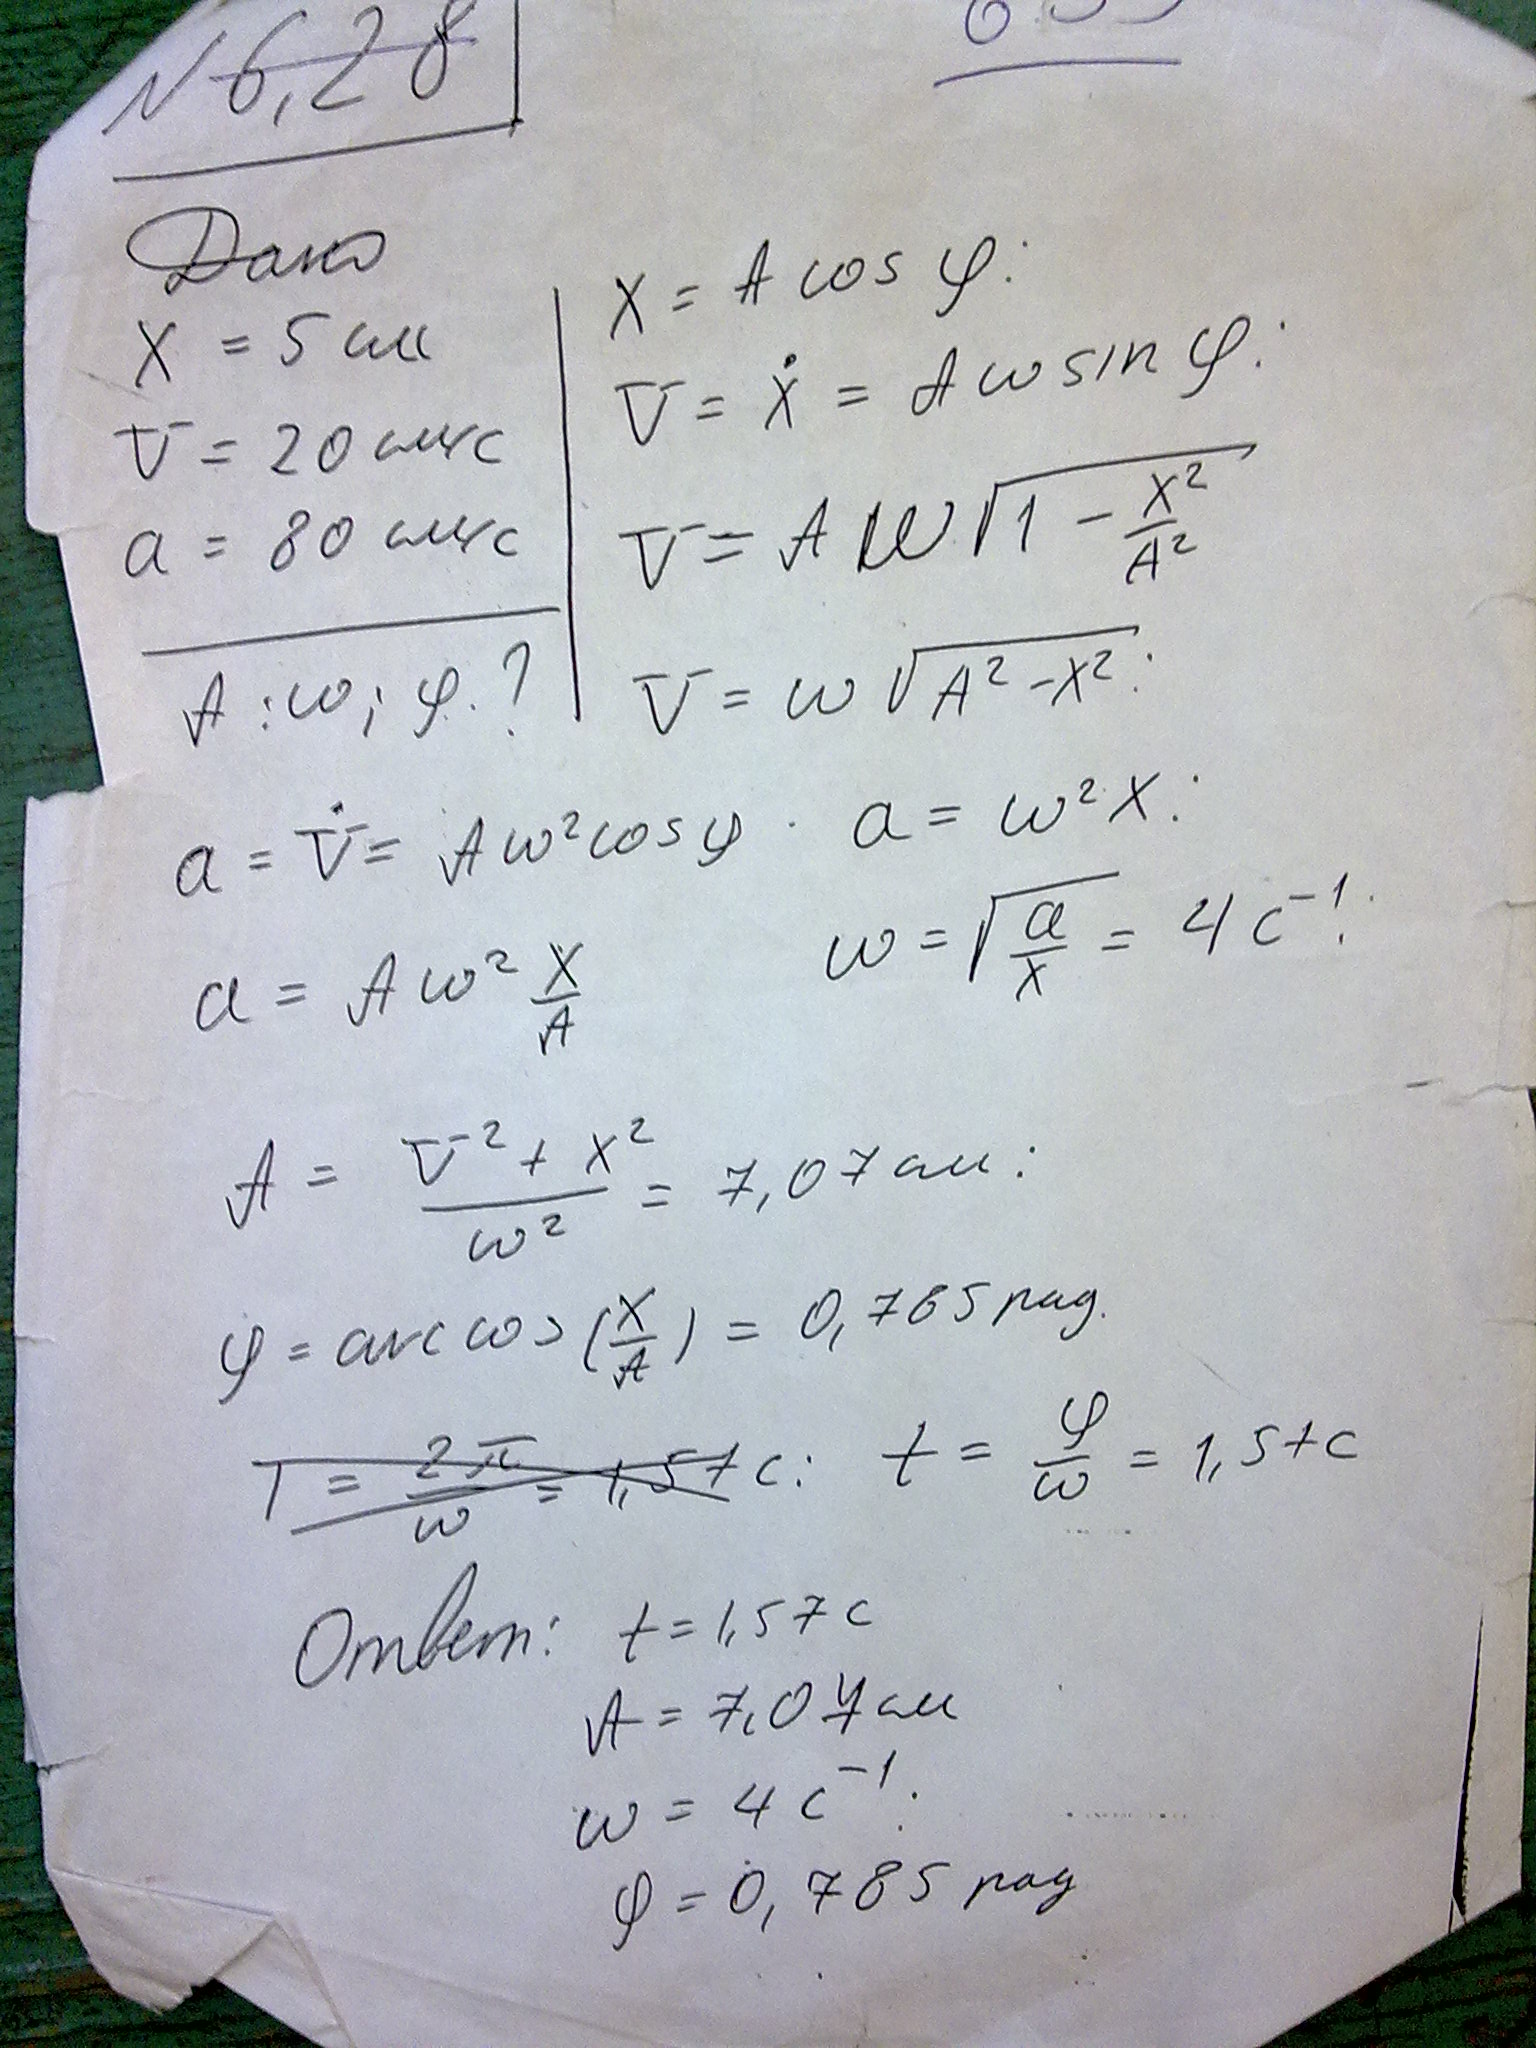 N 6,28
Дано
X = 5 см
V = 20 см/с
a = 80 см/с
A; ω; φ. ?
X = A cos φ:
V = Ẋ = A ω sin φ:
V = A ω √(1 - X²/A²)
V = ω √(A² - X²):
a = V̇ = A ω² cos φ . a = ω² X:
a = A ω² X/A
ω = √(a/x) = 4 с⁻¹:
A = (V² + X²)/ω² = 7,07 см:
φ = arccos (X/A) = 0,785 рад.
T = 2π/ω = 1,57 с: t = φ/ω = 1,57 с
Ответ: t = 1,57 с
A = 7,07 см
ω = 4 с⁻¹:
φ = 0,785 рад